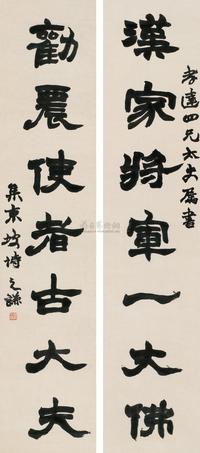 孝達四兄太史屬書
漢家將軍一大佛
勸農使者古大夫
之謙